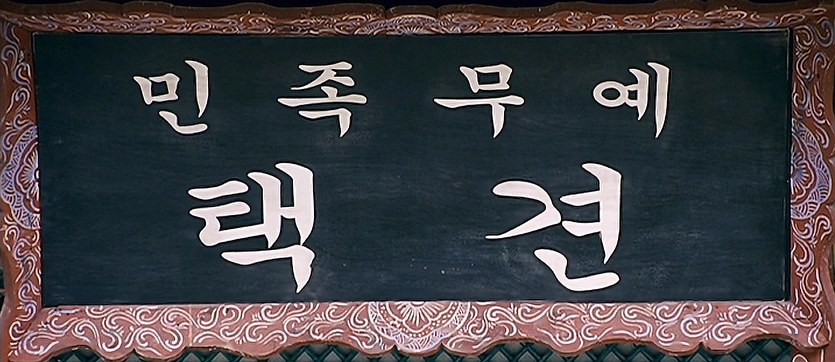 민족무예
택견